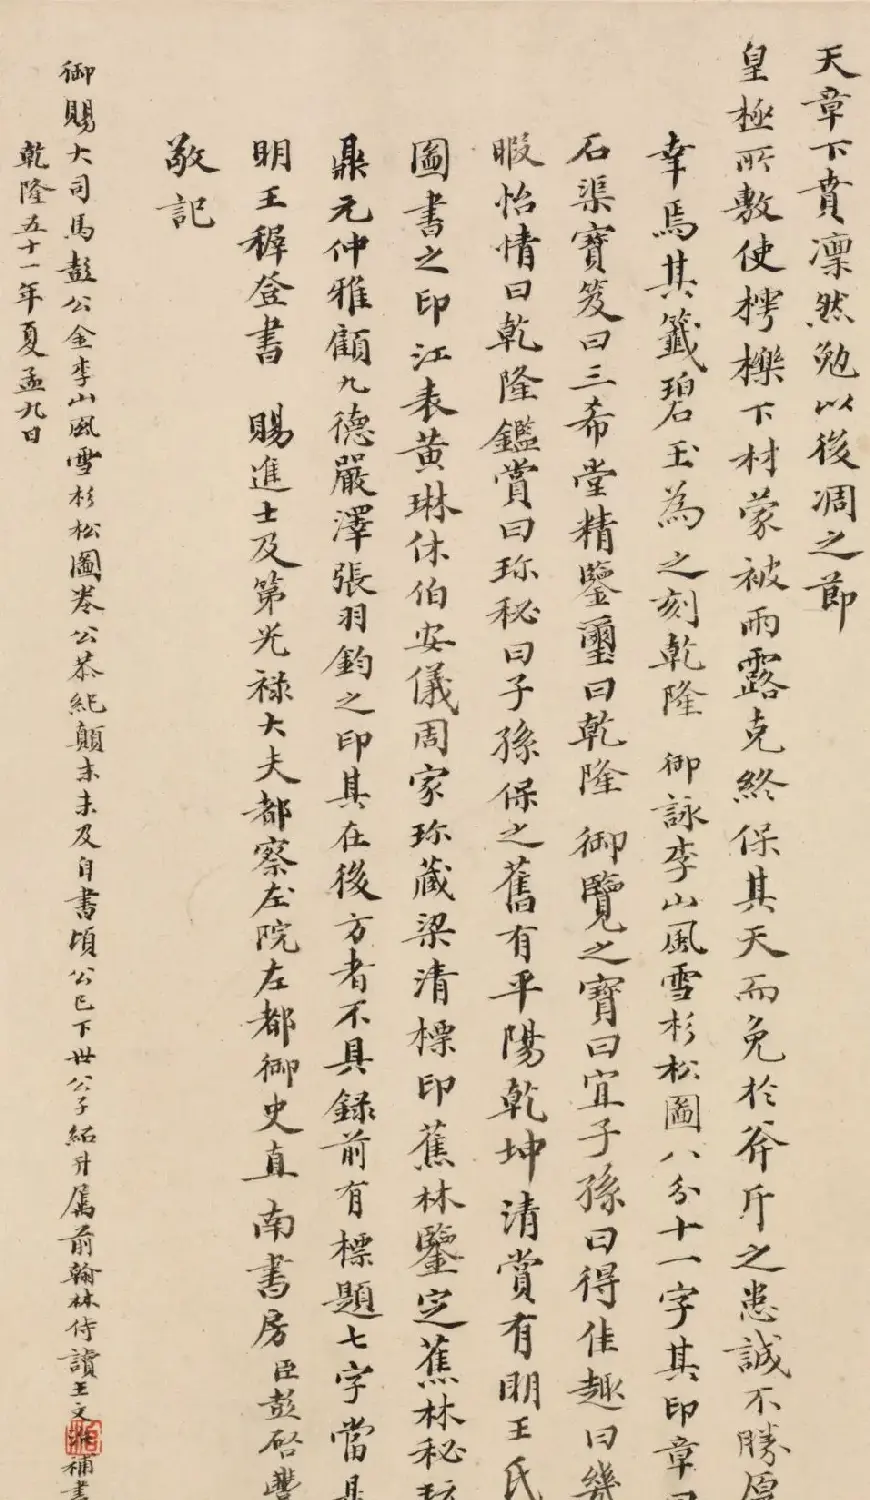 天章下賁凜然勉以後凋之節
皇極所敷使樗櫟下材蒙被雨露克終保其天而免於斧斤之患誠不勝厚
幸焉其籤碧玉為之刻乾隆 御詠李山風雪杉松圖八分十一字其印章曰
石渠寶笈曰三希堂精鑒璽曰乾隆 御覽之寶曰宜子孫曰得佳趣曰幾
暇怡情曰乾隆鑑賞曰珎秘曰子孫保之舊有平陽乾坤清賞有明王氏
圖書之印江表黃琳休伯安儀周家珎藏梁清標印蕉林鑒定蕉林秘玩
鼎元仲雅顧九德嚴澤張羽鈞之印其在後方者不具録前有標題七字當是
明王穉登書 賜進士及第光禄大夫都察左院左都御史直南書房臣彭啓豐
敬記
御賜大司馬彭公金李山風雪杉松圖卷公恭紀顛末未及自書頃公已下世公子紹升屬前翰林侍讀王文治補書
乾隆五十一年夏孟九日